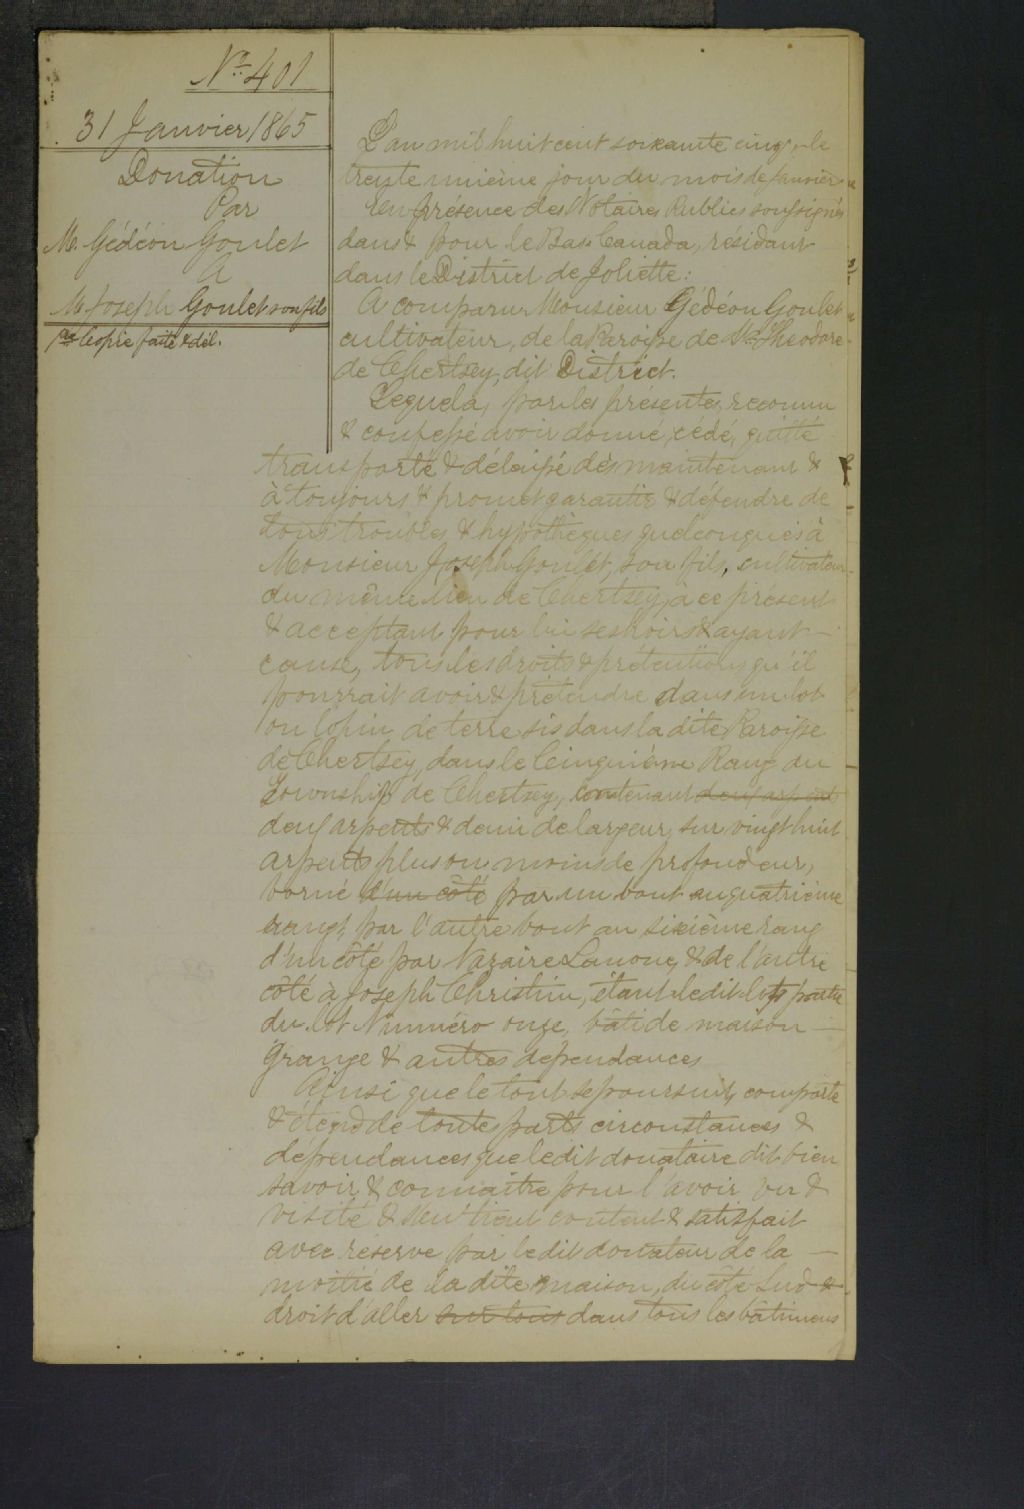 No. 401
31 Janvier 1865
Donation
Par
M. Gédéon Goulet
A
M. Joseph Goulet son fils
Copie faite & dél.
L'an mil huit cent soixante cinq, le
trente unième jour du mois de Janvier
En présence des Notaires Publics soussignés
dans & pour le Bas Canada, résidant
dans le District de Joliette:
A comparu Monsieur Gédéon Goulet
cultivateur, de la Paroisse de St. Théodore
de Chertsey, dit District.
Lequel a, par les présentes, reconnu
& confessé avoir donné, cédé, quitté
transporté & délaissé dès maintenant &
à toujours & promet garantir & défendre de
tous troubles & hypothèques quelconques à
Monsieur Joseph Goulet, son fils, cultivateur
du même lieu de Chertsey, à ce présent
& acceptant pour lui ses hoirs & ayant
cause, tous les droits & prétentions qu'il
pourrait avoir & prétendre dans un lot
ou lopin de terre sis dans la dite Paroisse
de Chertsey, dans le Cinquième Rang du
Township de Chertsey, contenant deux arpents
deux arpents & demi de largeur, sur vingt huit
arpents plus ou moins de profondeur,
borné d'un côté par un bout au quatrième
rang, par l'autre bout au sixième rang
d'un côté par Nazaire Lanoue, & de l'autre
côté à Joseph Christin, étant le dit lot partie
du lot Numéro onze, bâti de maison
grange & autres dépendances
Ainsi que le tout se poursuit, comporte
& étend de toutes parts circonstances &
dépendances que le dit donataire dit bien
savoir & connaître pour l'avoir vu &
visité & s'en tient content & satisfait
avec réserve par le dit donateur de la
moitié de la dite maison, du côté Sud &
droit d'aller sur tous dans tous les bâtimens